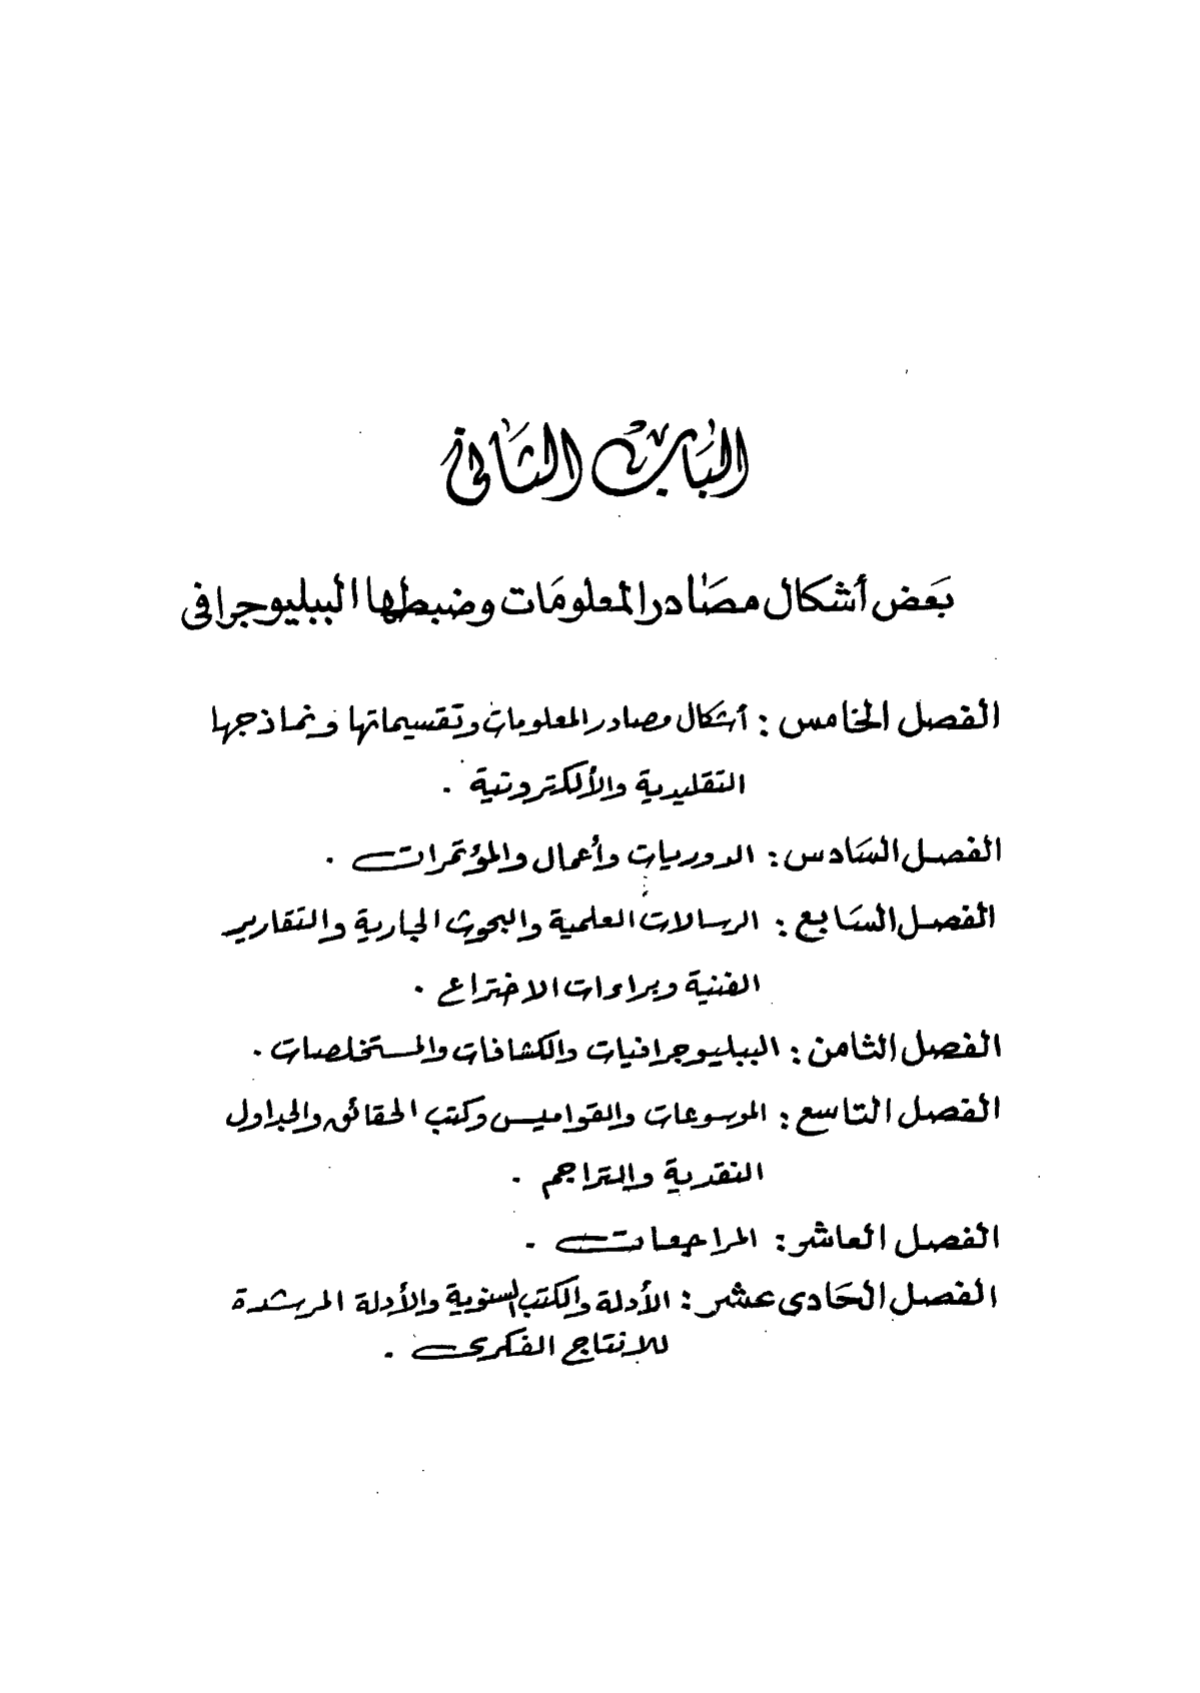 البَاب الثَانى
بَعَض أشكال مصَادر المعلومَات وضبطها الببليوجرافى
الفصل الخامس : أشكال مصادر المعلومات وتقسيماتها ونماذجها
التقليدية والألكترونية .
الفصل السَادس : الدوريات وأعمال والمؤتمرات .
الفصل السَابع : الرسالات العلمية والبحوث الجارية والتقارير
الفنية وبراءات الاختراع .
الفصل الثامن : الببليوجرافيات والكشافات والمستخلصات .
الفصل التاسع : الموسوعات والقواميس وكتب الحقائق والجداول
النقدية والتراجم .
الفصل العاشر : المراجعات .
الفصل الحَادى عشر : الأدلة والكتب السنوية والأدلة المرشدة
للانتاج الفكرى .